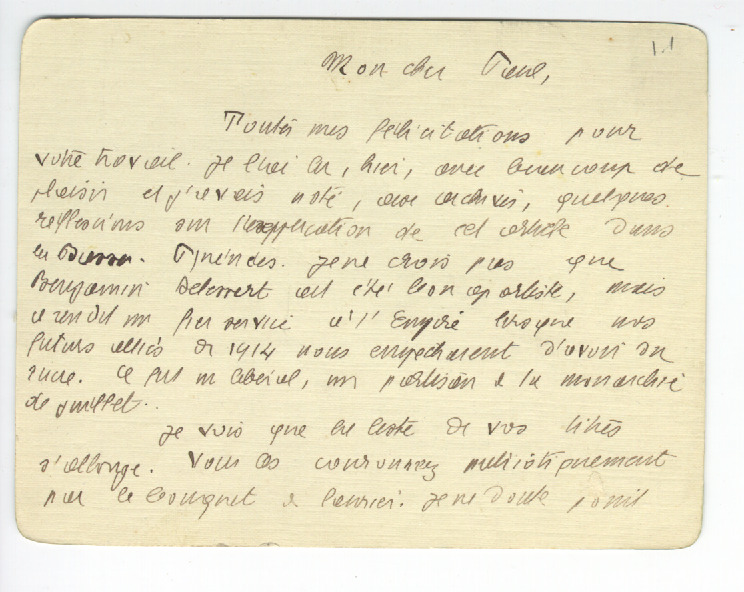 1.1
Mon cher Paul,
Toutes mes félicitations pour
votre travail. Je l'ai lu, hier, avec beaucoup de
plaisir et j'avais noté, aux archives, quelques
réflexions sur l'application de cet article dans
les Pyrénées. Je ne crois pas que
Benjamin Delessert ait été bonapartiste, mais
il rendit un fier service à l'Empire lorsque nos
futurs alliés de 1914 nous empêchaient d'avoir du
sucre. Ce fut un libéral, un partisan de la monarchie
de juillet.
Je vois que la liste de vos titres
s'allonge. Vous les couronnez
par le bouquet de laurier. Je ne doute point